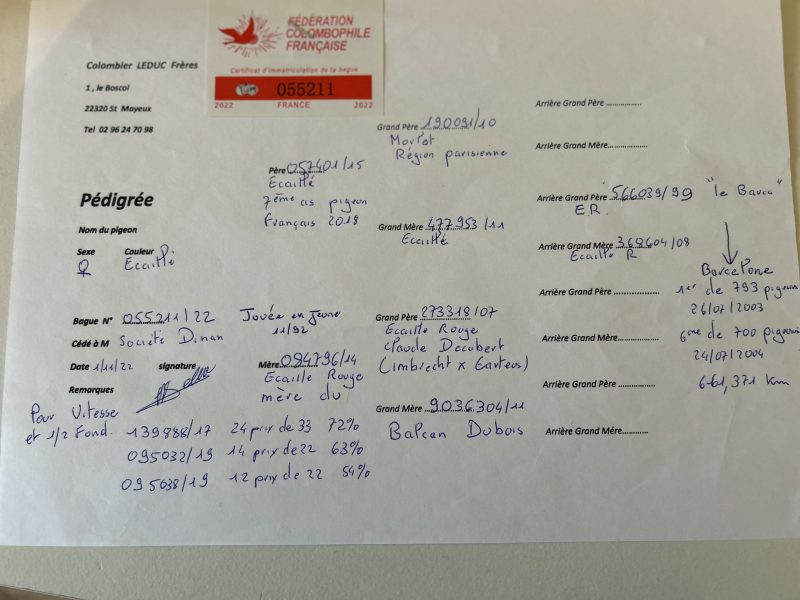 FÉDÉRATION
COLOMBOPHILE
FRANÇAISE
Certificat d'immatriculation de la bague
055211
2022 FRANCE 2022
Colombier LEDUC Frères
1 , le Boscol
22320 St Mayeux
Tel 02 96 24 70 98
Pédigrée
Nom du pigeon
Sexe Couleur
♀ Ecaillé
Bague N° 055211/22 Jouée en jeune
11/92
Cédé à M Société Dinan
Date 1/11/22 signature
Remarques
Pour Vitesse
et 1/2 Fond.
Père 057401/15
Ecaillé
7ème as pigeon
Français 2018
Mère 094796/14
Ecaille Rouge
mère du
139888/17 24 prix de 33 72%
095032/19 14 prix de 22 63%
095038/19 12 prix de 22 54%
Grand Père 190091/10
Région parisienne
Grand Mère 477953/11
Ecaillé
Grand Père 273318/07
Ecaille Rouge
Claude Decobert
(Imbrecht x
Grand Mère 9036304/11
Balcan Dubois
Arrière Grand Père
Arrière Grand Mère
Arrière Grand Père 566039/99 "le Barca"
E.R.
Arrière Grand Mère 368604/08
Ecaille R
Arrière Grand Père
Arrière Grand Mère
Arrière Grand Père
Arrière Grand Mère
Barcelone
1er de 793 pigeons
26/07/2003
6ème de 700 pigeons
24/07/2004
661,371 km